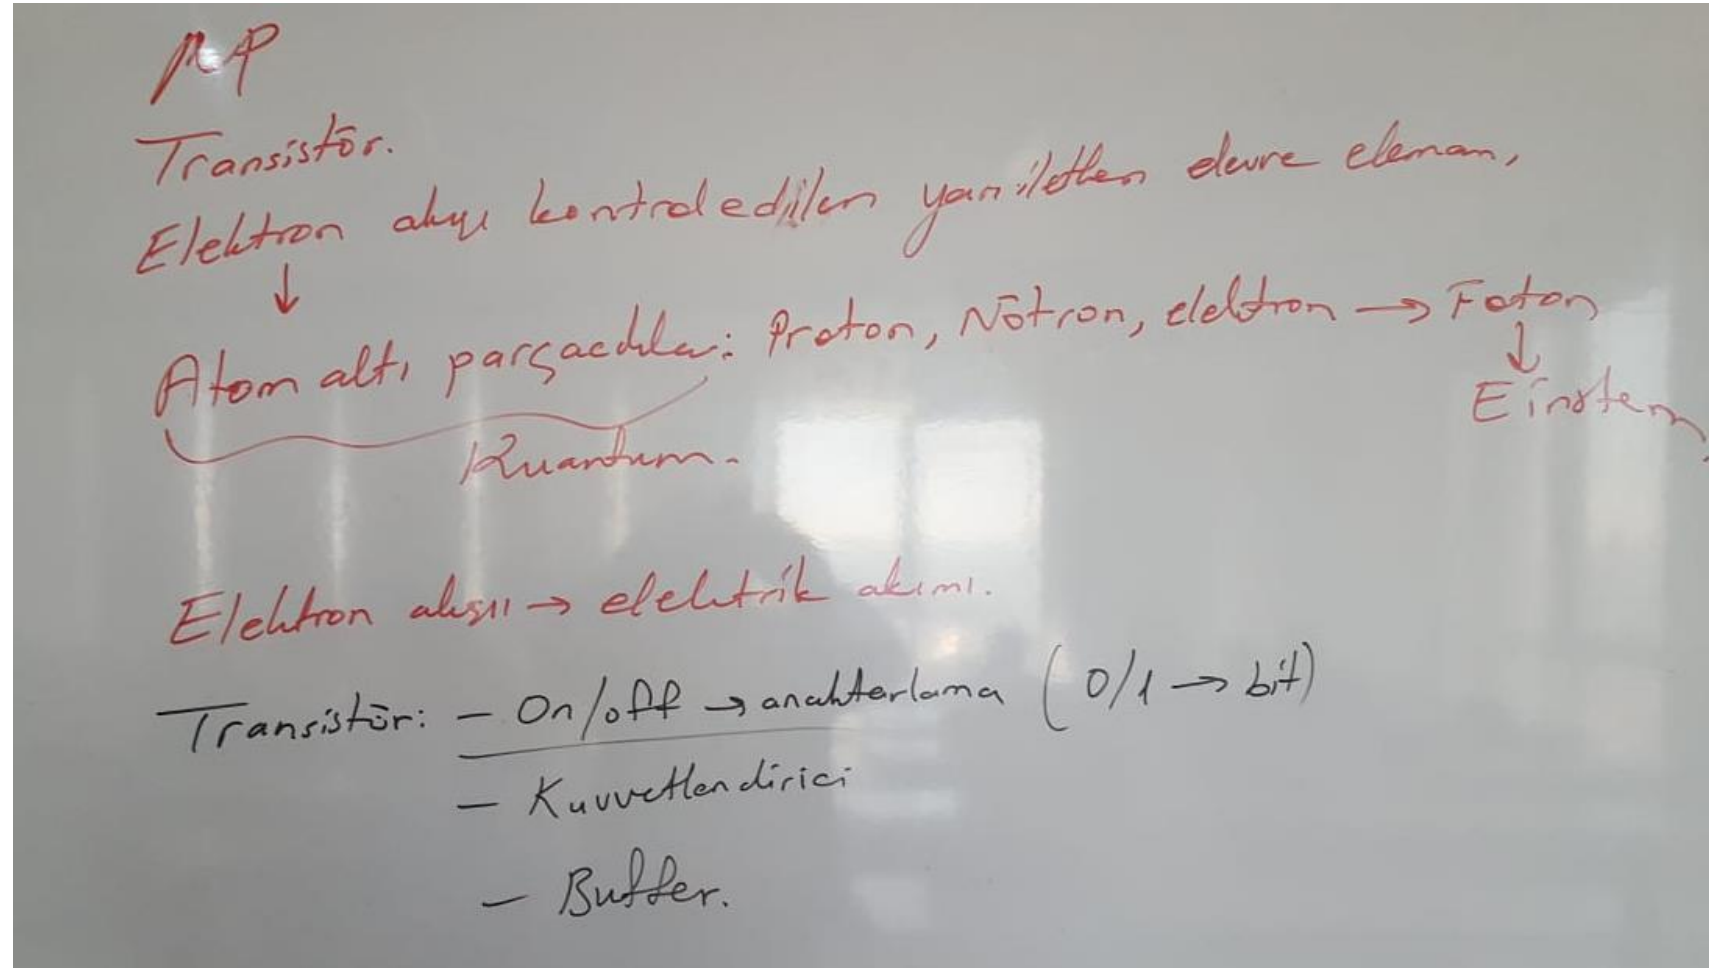 μP
Transistör.
Elektron akışı kontrol edilen yarı iletken devre elemanı
↓
Atom altı parçacıklar: Proton, Nötron, elektron → Foton
↓
Einstein
Kuantum.
Elektron akışı → elektrik akımı.
Transistör: - On/off → anahtarlama ( 0/1 → bit)
- Kuvvetlendirici
- Buffer.